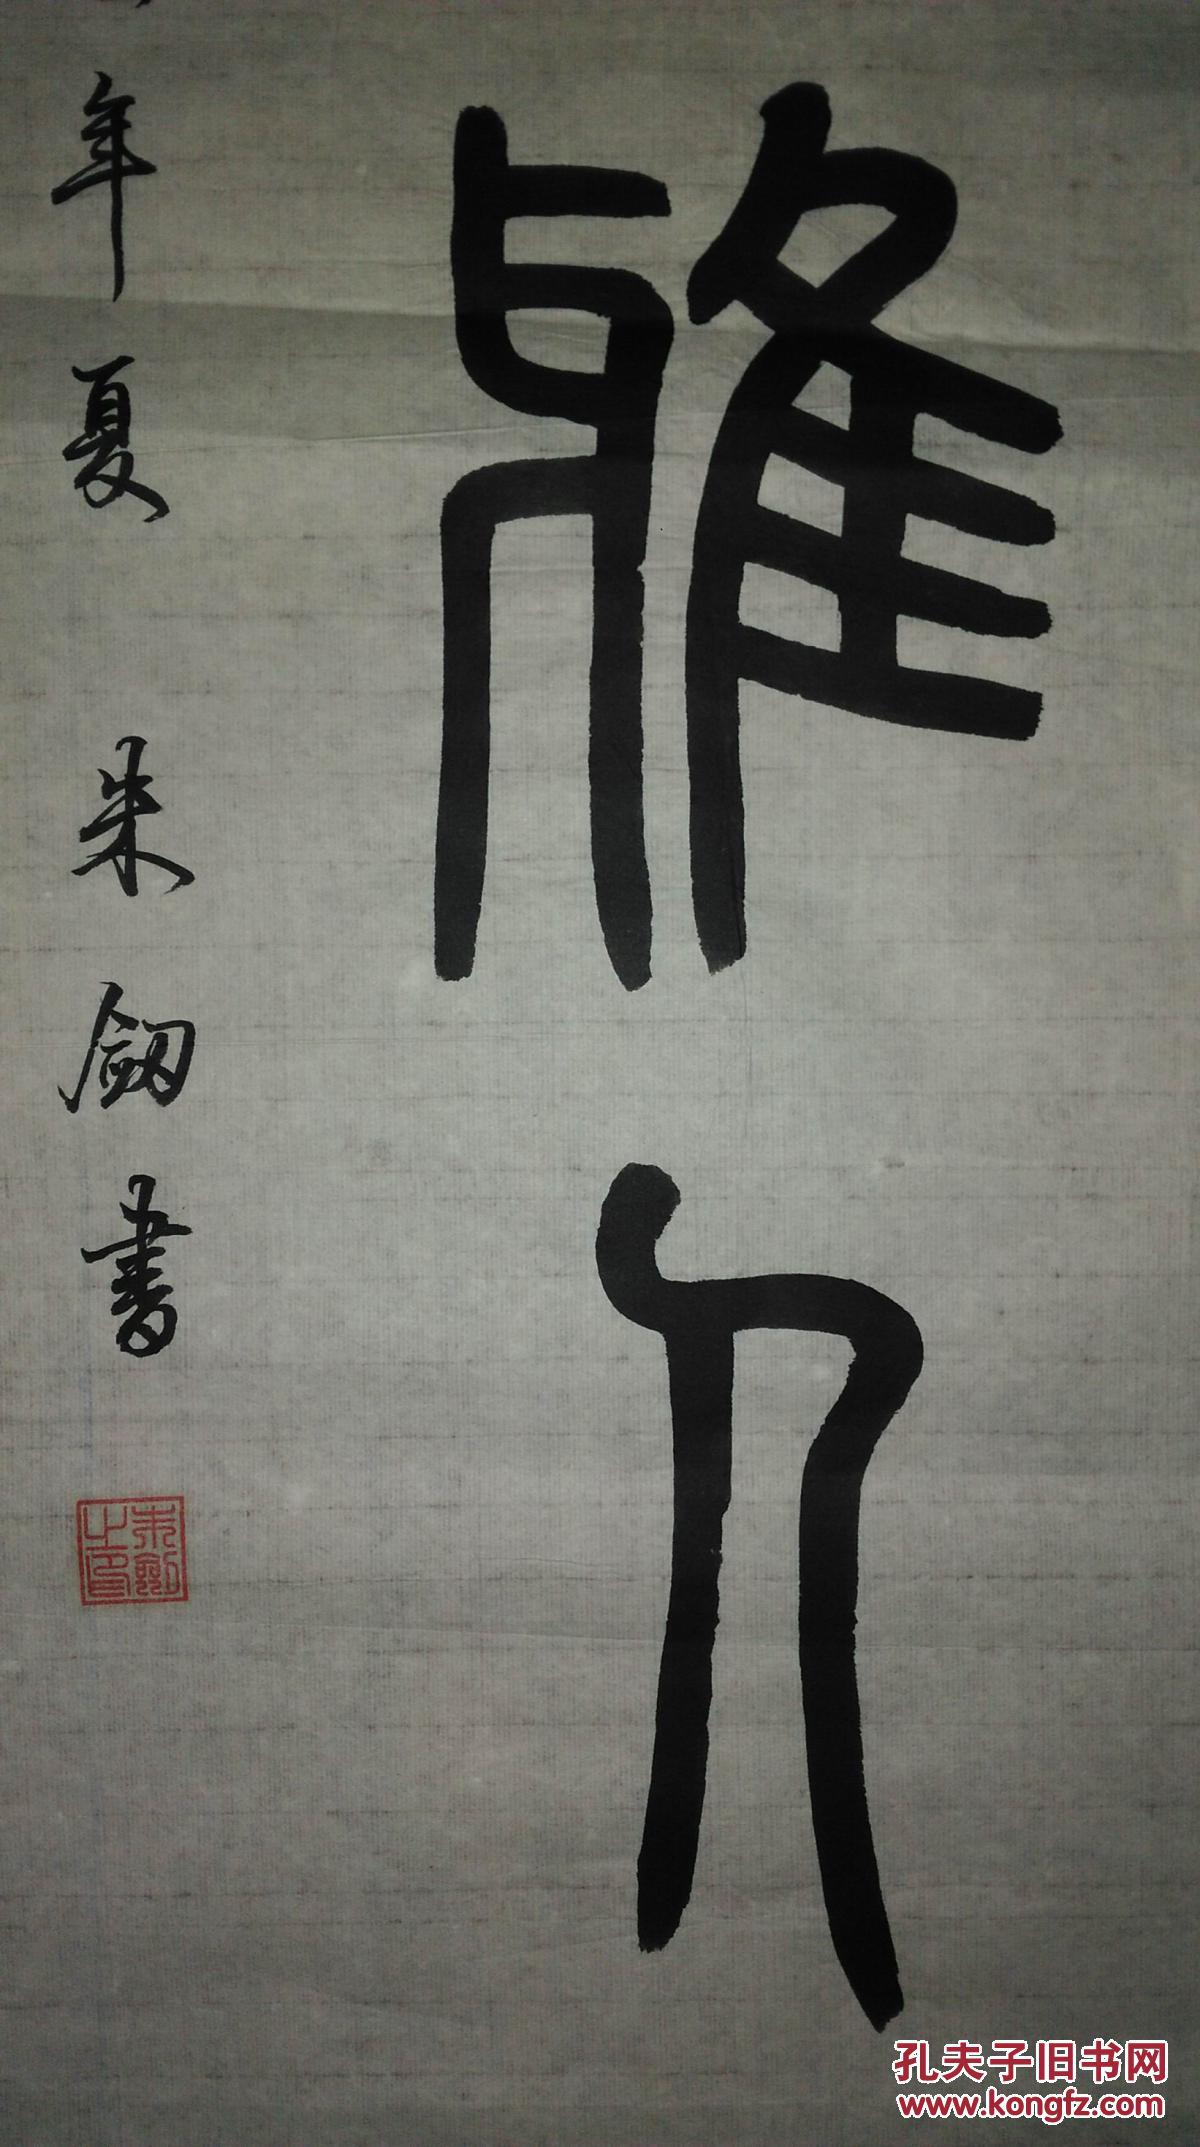 雅人
年夏 朱劒書
朱劍之印
孔夫子旧书网
www.kongfz.com